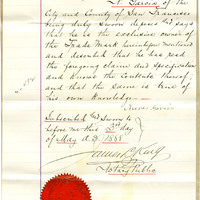 F. Garcia of the
City and County of San Francisco
being duly sworn deposes and says
that he is the exclusive owner of
the Trade Mark hereinbefore mentioned
and described that he has read
the foregoing claim and specification
and knows the contents thereof;
and that the same is true of
his own knowledge.
Subscribed and Sworn to
before me this 3rd day
of May A.D. 1888
Notary Public